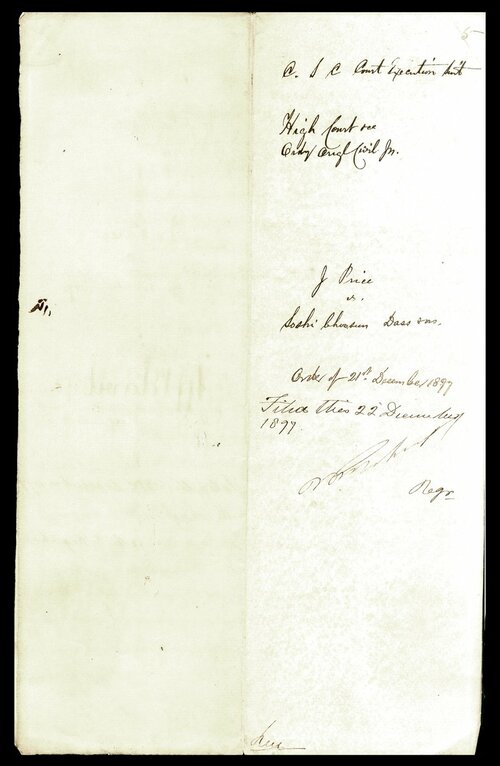 5
C. S C Court Execution Suit
High Court &ca
Ordy Origl Civil Jn.
J Price
vs.
Soshi Bhoosun Dass &ors.
Order of 21st December 1897
Filed this 22d December
1897.
Regr